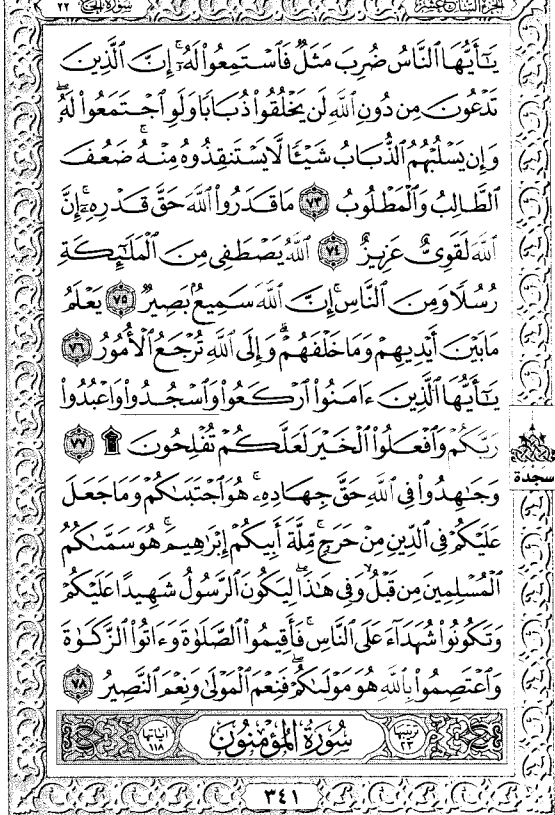 سُورَةُ الحَجِّ ٢٢
يَٰٓأَيُّهَا ٱلنَّاسُ ضُرِبَ مَثَلٌ فَٱسْتَمِعُوا۟ لَهُۥٓ ۚ إِنَّ ٱلَّذِينَ
تَدْعُونَ مِن دُونِ ٱللَّهِ لَن يَخْلُقُوا۟ ذُبَابًا وَلَوِ ٱجْتَمَعُوا۟ لَهُۥ ۖ
وَإِن يَسْلُبْهُمُ ٱلذُّبَابُ شَيْـًٔا لَّا يَسْتَنقِذُوهُ مِنْهُ ۚ ضَعُفَ
ٱلطَّالِبُ وَٱلْمَطْلُوبُ ٧٣ مَا قَدَرُوا۟ ٱللَّهَ حَقَّ قَدْرِهِۦٓ ۗ إِنَّ
ٱللَّهَ لَقَوِىٌّ عَزِيزٌ ٧٤ ٱللَّهُ يَصْطَفِى مِنَ ٱلْمَلَٰٓئِكَةِ
رُسُلًا وَمِنَ ٱلنَّاسِ ۚ إِنَّ ٱللَّهَ سَمِيعٌۢ بَصِيرٌ ٧٥ يَعْلَمُ
مَا بَيْنَ أَيْدِيهِمْ وَمَا خَلْفَهُمْ ۗ وَإِلَى ٱللَّهِ تُرْجَعُ ٱلْأُمُورُ ٧٦
يَٰٓأَيُّهَا ٱلَّذِينَ ءَامَنُوا۟ ٱرْكَعُوا۟ وَٱسْجُدُوا۟ وَٱعْبُدُوا۟
رَبَّكُمْ وَٱفْعَلُوا۟ ٱلْخَيْرَ لَعَلَّكُمْ تُفْلِحُونَ ۩ ٧٧
سجدة
وَجَٰهِدُوا۟ فِى ٱللَّهِ حَقَّ جِهَادِهِۦ ۚ هُوَ ٱجْتَبَىٰكُمْ وَمَا جَعَلَ
عَلَيْكُمْ فِى ٱلدِّينِ مِنْ حَرَجٍ ۚ مِّلَّةَ أَبِيكُمْ إِبْرَٰهِيمَ ۚ هُوَ سَمَّىٰكُمُ
ٱلْمُسْلِمِينَ مِن قَبْلُ وَفِى هَٰذَا لِيَكُونَ ٱلرَّسُولُ شَهِيدًا عَلَيْكُمْ
وَتَكُونُوا۟ شُهَدَآءَ عَلَى ٱلنَّاسِ ۚ فَأَقِيمُوا۟ ٱلصَّلَوٰةَ وَءَاتُوا۟ ٱلزَّكَوٰةَ
وَٱعْتَصِمُوا۟ بِٱللَّهِ هُوَ مَوْلَىٰكُمْ ۖ فَنِعْمَ ٱلْمَوْلَىٰ وَنِعْمَ ٱلنَّصِيرُ ٧٨
ترتيبها ٢٣ سُورَةُ المُؤْمِنُونَ آياتها ١١٨
٣٤١